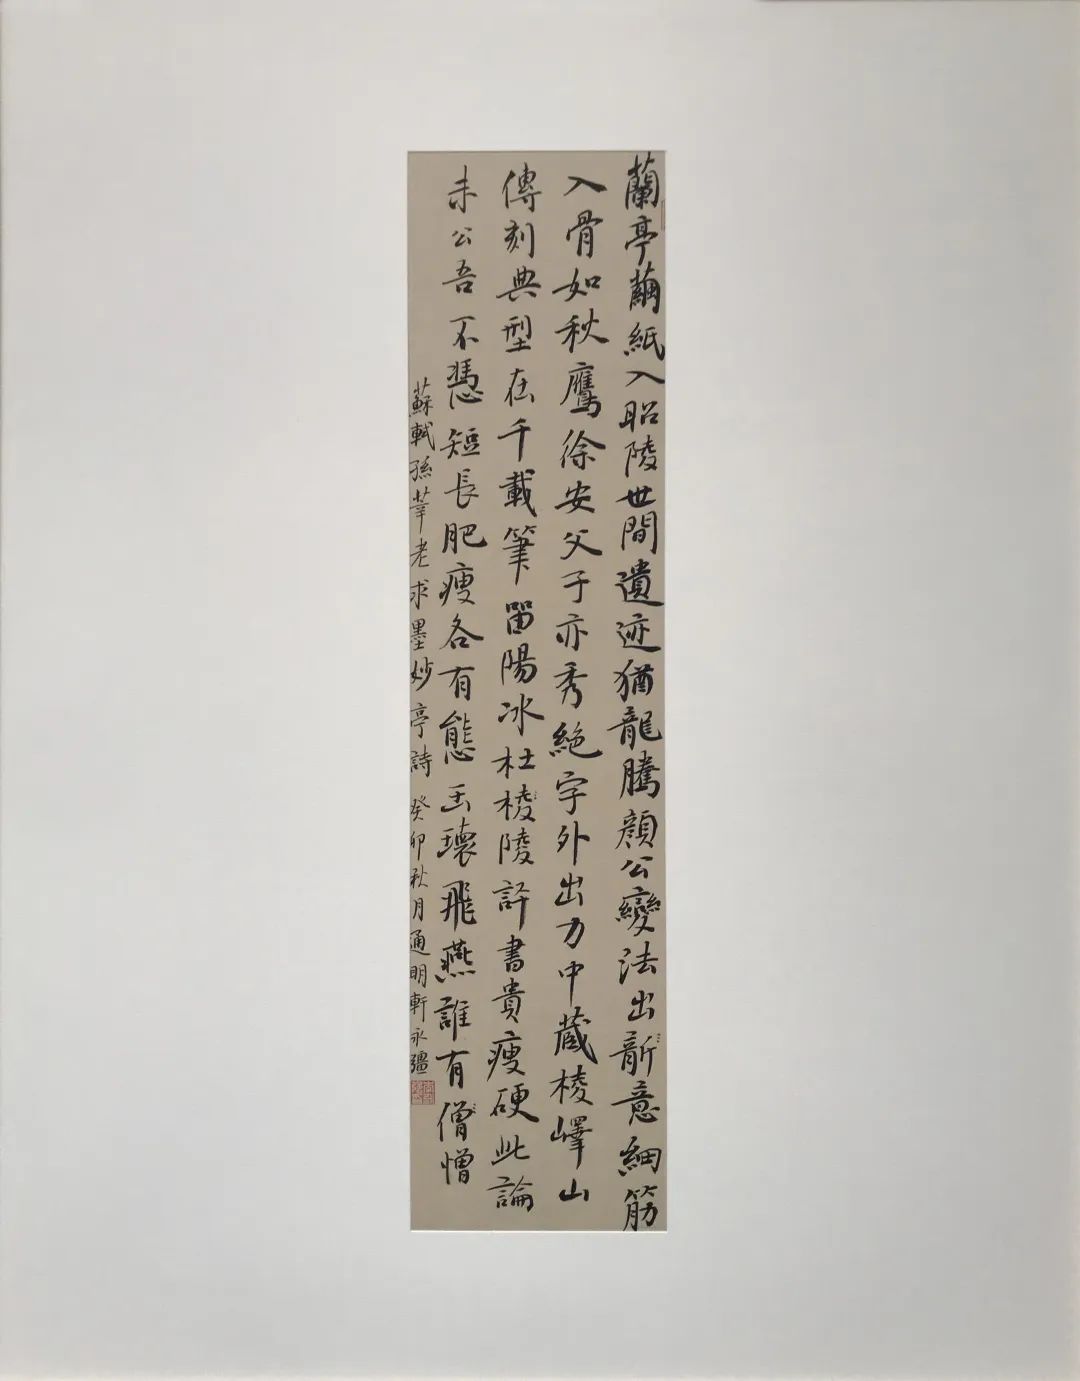 蘭亭繭紙入昭陵世間遺迹猶龍騰顔公變法出新意細筋
入骨如秋鷹徐安父子亦秀絶字外出力中藏棱嶧山
傳刻典型在千載筆留陽冰杜棱陵評書貴瘦硬此論
未公吾不憑短長肥瘦各有態玉環飛燕誰有僧憎
蘇軾孫莘老求墨妙亭詩 癸卯秋月通明軒永彊